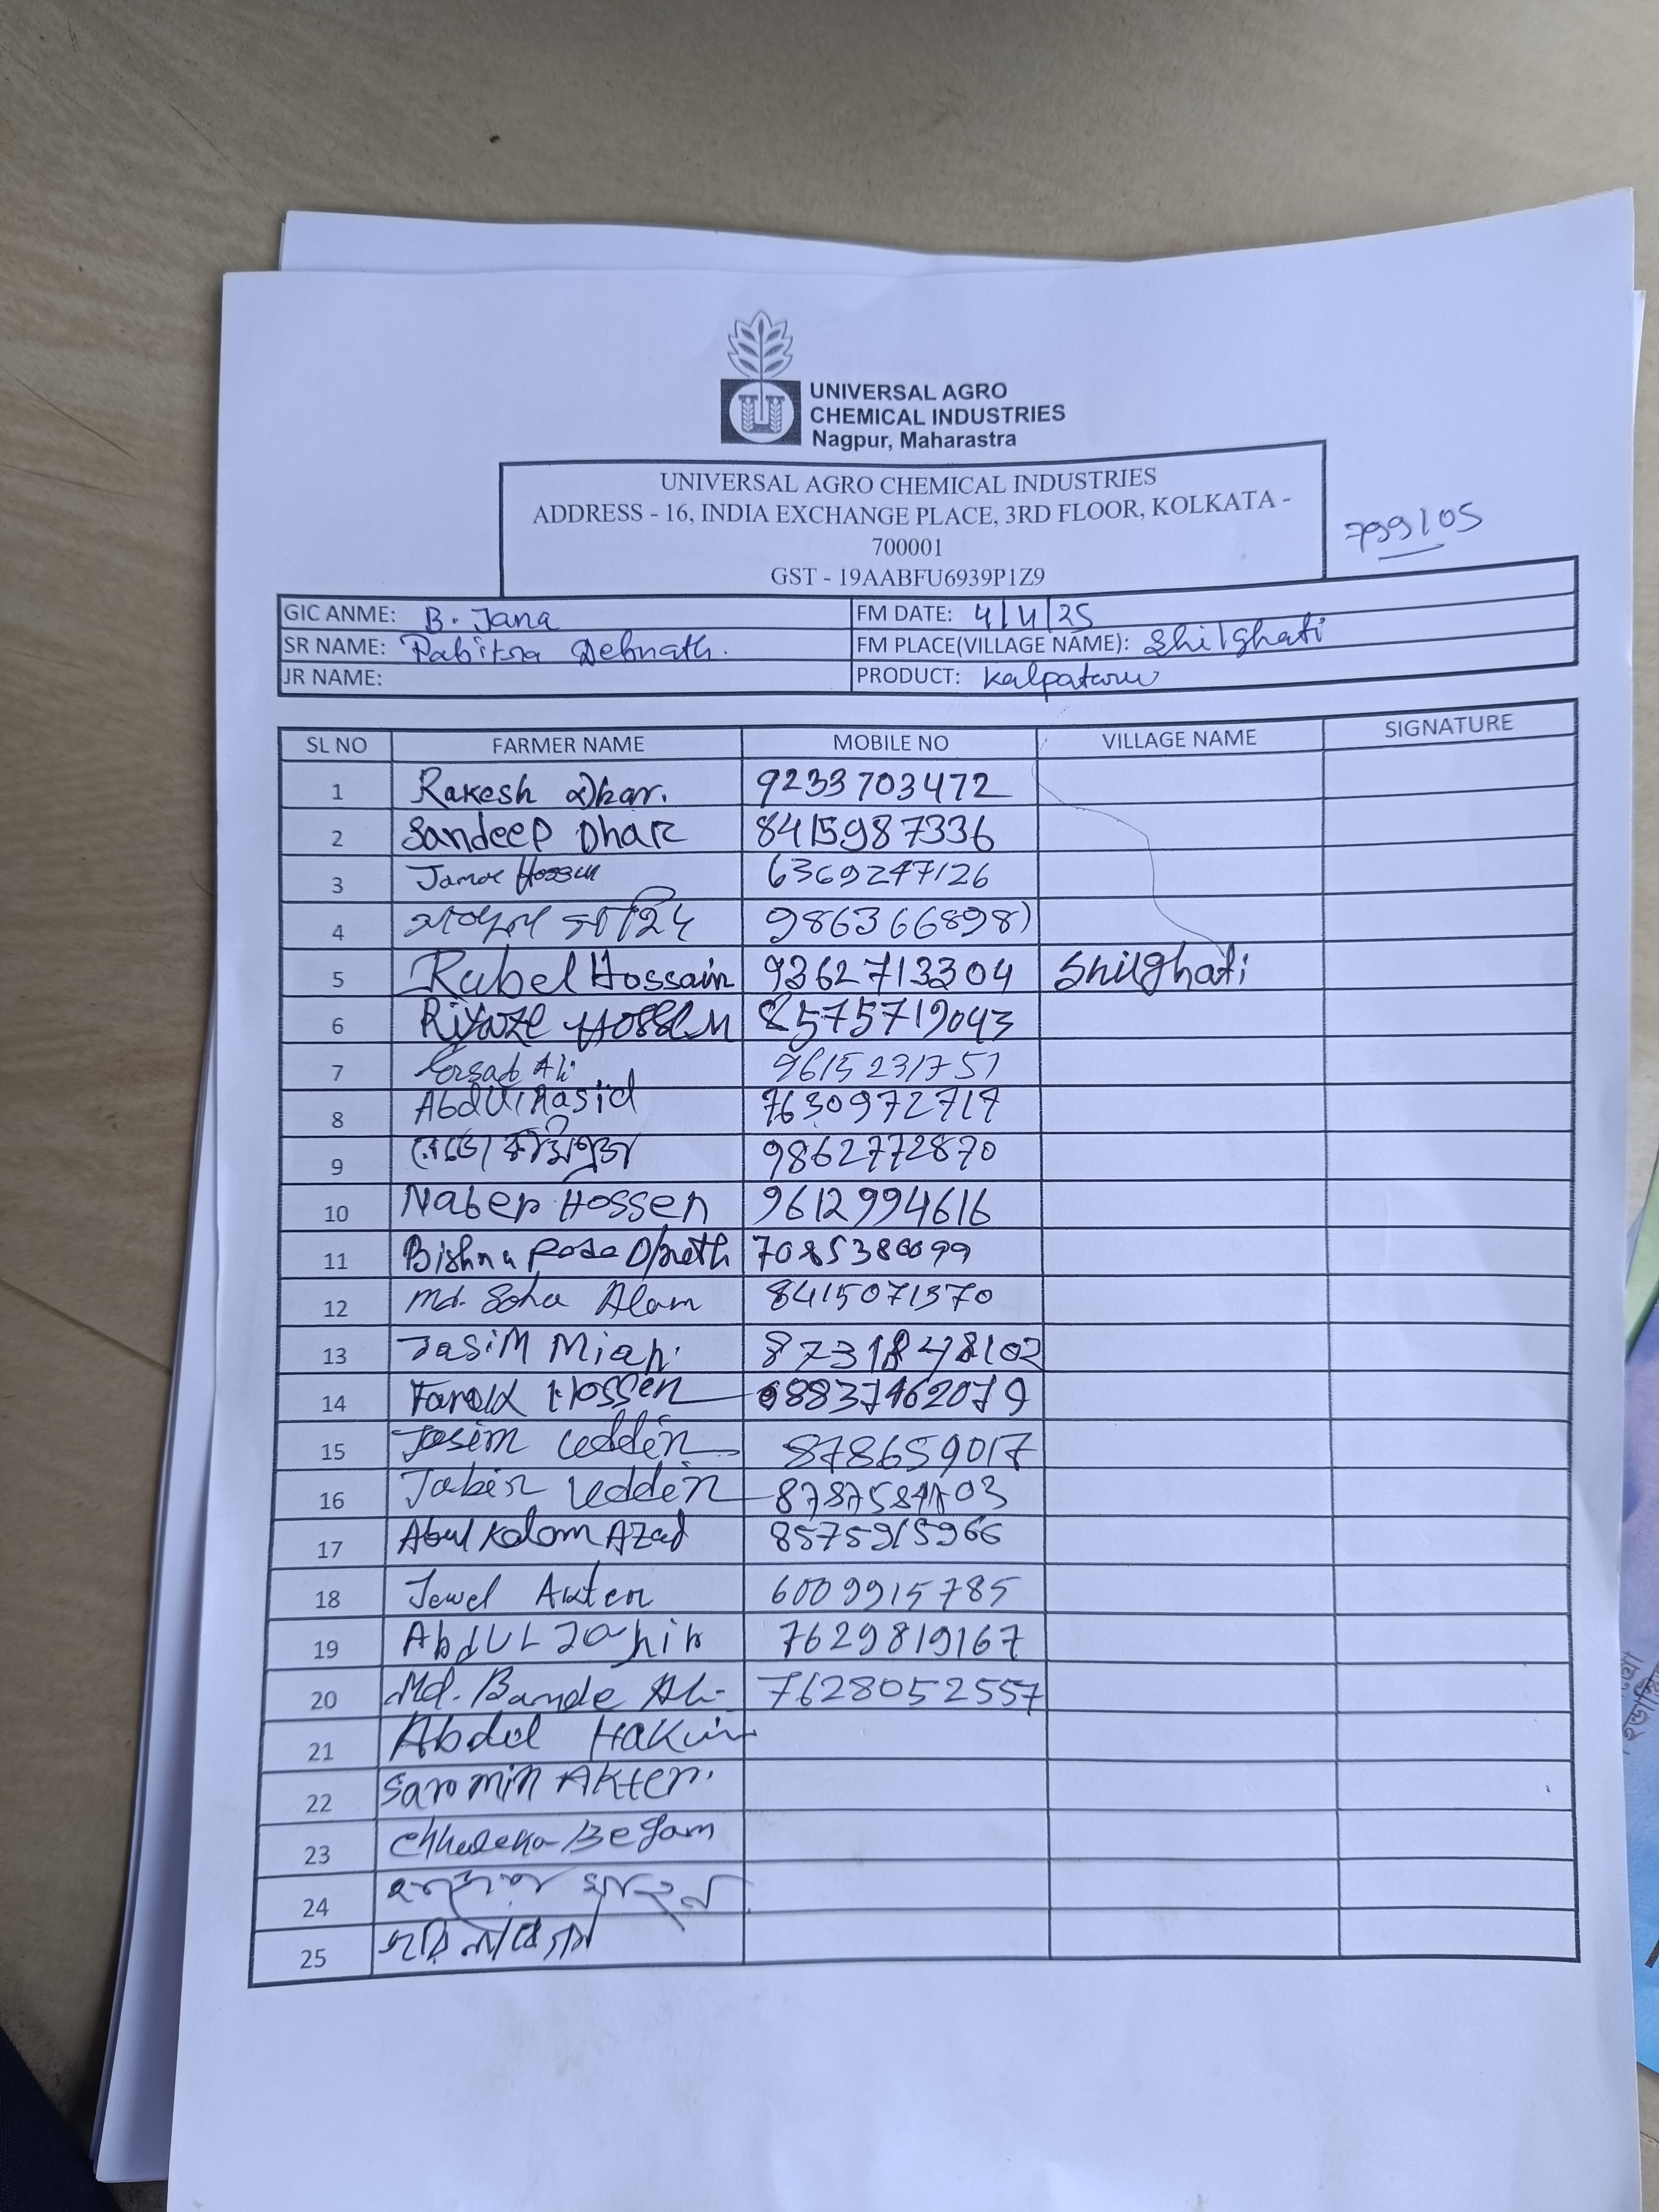 UNIVERSAL AGRO
CHEMICAL INDUSTRIES
Nagpur, Maharastra
UNIVERSAL AGRO CHEMICAL INDUSTRIES
ADDRESS - 16, INDIA EXCHANGE PLACE, 3RD FLOOR, KOLKATA -
700001
GST - 19AABFU6939P1Z9
799105
GIC ANME: B. Jana FM DATE: 4/4/25
SR NAME: Pabitra Debnath. FM PLACE(VILLAGE NAME): Shilghati
JR NAME: PRODUCT: Kalpataru
SL NO FARMER NAME MOBILE NO VILLAGE NAME SIGNATURE
1 Rakesh Dhar. 9233703472
2 Sandeep Dhar 8415987336
3 Hossen 6369247126
4
5 Rubel Hossain 9362713304 Shilghati
6 Hossen 8575719043
7 Ersad Ali 9615231751
8 Abdul Rasid 7630972717
9 9862772870
10 Naber Hossen 9612994616
11 Bishnu
12 Md. Alam 8415071570
13 Jasim Miah.
14 Hossen
15 Josim Uddin 878659017
16 Jabir Uddin
17 Abul Kalam Azad 8575915966
18 Jewel Akter 6009915785
19 Abdul Jahir 7629819167
20 Md. Bande Ali 7628052557
21 Abdul Hakim
22 Saromin Akter.
23 Begam
24
25